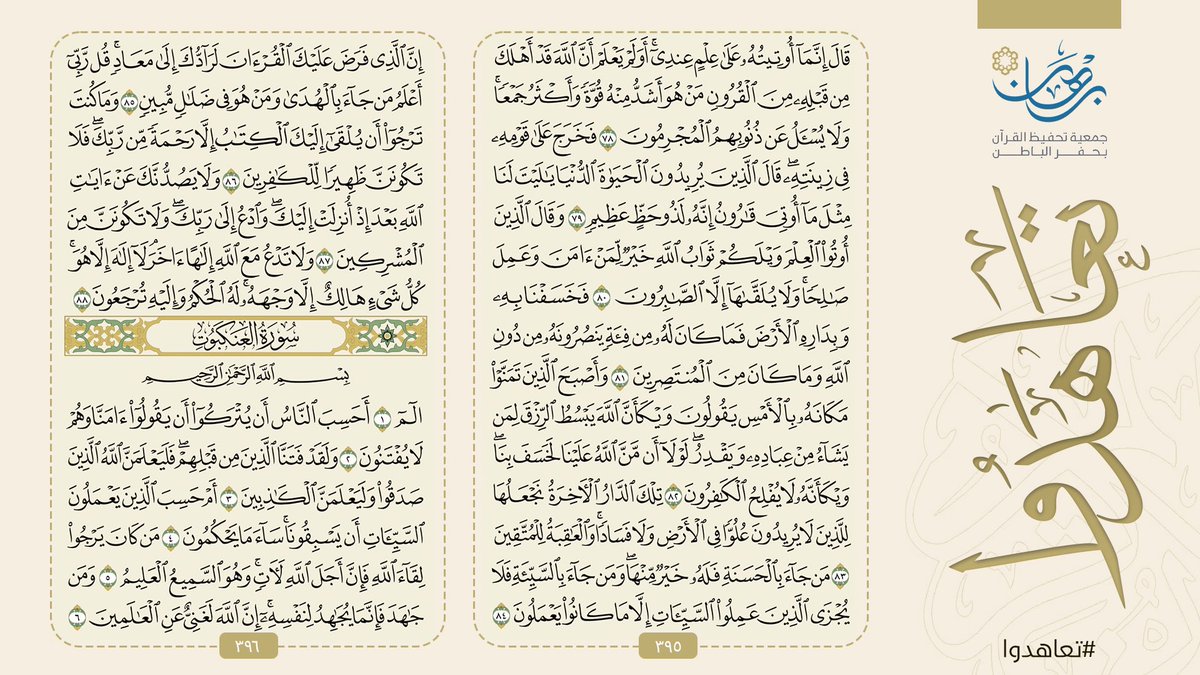 برهان
جمعية تحفيظ القرآن
بحفر الباطن
تعاهدوا
#تعاهدوا
قَالَ إِنَّمَآ أُوتِيتُهُۥ عَلَىٰ عِلْمٍ عِندِيٓۚ أَوَلَمْ يَعْلَمْ أَنَّ ٱللَّهَ قَدْ أَهْلَكَ
مِن قَبْلِهِۦ مِنَ ٱلْقُرُونِ مَنْ هُوَ أَشَدُّ مِنْهُ قُوَّةً وَأَكْثَرُ جَمْعًاۚ
وَلَا يُسْـَٔلُ عَن ذُنُوبِهِمُ ٱلْمُجْرِمُونَ ٧٨ فَخَرَجَ عَلَىٰ قَوْمِهِۦ
فِي زِينَتِهِۦۖ قَالَ ٱلَّذِينَ يُرِيدُونَ ٱلْحَيَوٰةَ ٱلدُّنْيَا يَٰلَيْتَ لَنَا
مِثْلَ مَآ أُوتِيَ قَٰرُونُ إِنَّهُۥ لَذُو حَظٍّ عَظِيمٍ ٧٩ وَقَالَ ٱلَّذِينَ
أُوتُوا۟ ٱلْعِلْمَ وَيْلَكُمْ ثَوَابُ ٱللَّهِ خَيْرٌ لِّمَنْ ءَامَنَ وَعَمِلَ
صَٰلِحًاۚ وَلَا يُلَقَّىٰهَآ إِلَّا ٱلصَّٰبِرُونَ ٨٠ فَخَسَفْنَا بِهِۦ
وَبِدَارِهِ ٱلْأَرْضَ فَمَا كَانَ لَهُۥ مِن فِئَةٍ يَنصُرُونَهُۥ مِن دُونِ
ٱللَّهِ وَمَا كَانَ مِنَ ٱلْمُنتَصِرِينَ ٨١ وَأَصْبَحَ ٱلَّذِينَ تَمَنَّوْا۟
مَكَانَهُۥ بِٱلْأَمْسِ يَقُولُونَ وَيْكَأَنَّ ٱللَّهَ يَبْسُطُ ٱلرِّزْقَ لِمَن
يَشَآءُ مِنْ عِبَادِهِۦ وَيَقْدِرُۖ لَوْلَآ أَن مَّنَّ ٱللَّهُ عَلَيْنَا لَخَسَفَ بِنَاۖ
وَيْكَأَنَّهُۥ لَا يُفْلِحُ ٱلْكَٰفِرُونَ ٨٢ تِلْكَ ٱلدَّارُ ٱلْأٓخِرَةُ نَجْعَلُهَا
لِلَّذِينَ لَا يُرِيدُونَ عُلُوًّا فِي ٱلْأَرْضِ وَلَا فَسَادًاۚ وَٱلْعَٰقِبَةُ لِلْمُتَّقِينَ
٨٣ مَن جَآءَ بِٱلْحَسَنَةِ فَلَهُۥ خَيْرٌ مِّنْهَاۖ وَمَن جَآءَ بِٱلسَّيِّئَةِ فَلَا
يُجْزَى ٱلَّذِينَ عَمِلُوا۟ ٱلسَّيِّـَٔاتِ إِلَّا مَا كَانُوا۟ يَعْمَلُونَ ٨٤
٣٩٥
إِنَّ ٱلَّذِي فَرَضَ عَلَيْكَ ٱلْقُرْءَانَ لَرَآدُّكَ إِلَىٰ مَعَادٍۚ قُل رَّبِّيٓ
أَعْلَمُ مَن جَآءَ بِٱلْهُدَىٰ وَمَنْ هُوَ فِي ضَلَٰلٍ مُّبِينٍ ٨٥ وَمَا كُنتَ
تَرْجُوٓا۟ أَن يُلْقَىٰٓ إِلَيْكَ ٱلْكِتَٰبُ إِلَّا رَحْمَةً مِّن رَّبِّكَۖ فَلَا
تَكُونَنَّ ظَهِيرًا لِّلْكَٰفِرِينَ ٨٦ وَلَا يَصُدُّنَّكَ عَنْ ءَايَٰتِ
ٱللَّهِ بَعْدَ إِذْ أُنزِلَتْ إِلَيْكَۖ وَٱدْعُ إِلَىٰ رَبِّكَۖ وَلَا تَكُونَنَّ مِنَ
ٱلْمُشْرِكِينَ ٨٧ وَلَا تَدْعُ مَعَ ٱللَّهِ إِلَٰهًا ءَاخَرَۘ لَآ إِلَٰهَ إِلَّا هُوَۚ
كُلُّ شَيْءٍ هَالِكٌ إِلَّا وَجْهَهُۥۚ لَهُ ٱلْحُكْمُ وَإِلَيْهِ تُرْجَعُونَ ٨٨
سُورَةُ العَنكَبُوتِ
بِسْمِ ٱللَّهِ ٱلرَّحْمَٰنِ ٱلرَّحِيمِ
الٓمٓ ١ أَحَسِبَ ٱلنَّاسُ أَن يُتْرَكُوٓا۟ أَن يَقُولُوٓا۟ ءَامَنَّا وَهُمْ
لَا يُفْتَنُونَ ٢ وَلَقَدْ فَتَنَّا ٱلَّذِينَ مِن قَبْلِهِمْۖ فَلَيَعْلَمَنَّ ٱللَّهُ ٱلَّذِينَ
صَدَقُوا۟ وَلَيَعْلَمَنَّ ٱلْكَٰذِبِينَ ٣ أَمْ حَسِبَ ٱلَّذِينَ يَعْمَلُونَ
ٱلسَّيِّـَٔاتِ أَن يَسْبِقُونَاۚ سَآءَ مَا يَحْكُمُونَ ٤ مَن كَانَ يَرْجُوا۟
لِقَآءَ ٱللَّهِ فَإِنَّ أَجَلَ ٱللَّهِ لَأٓتٍۚ وَهُوَ ٱلسَّمِيعُ ٱلْعَلِيمُ ٥ وَمَن
جَٰهَدَ فَإِنَّمَا يُجَٰهِدُ لِنَفْسِهِۦٓۚ إِنَّ ٱللَّهَ لَغَنِيٌّ عَنِ ٱلْعَٰلَمِينَ ٦
٣٩٦